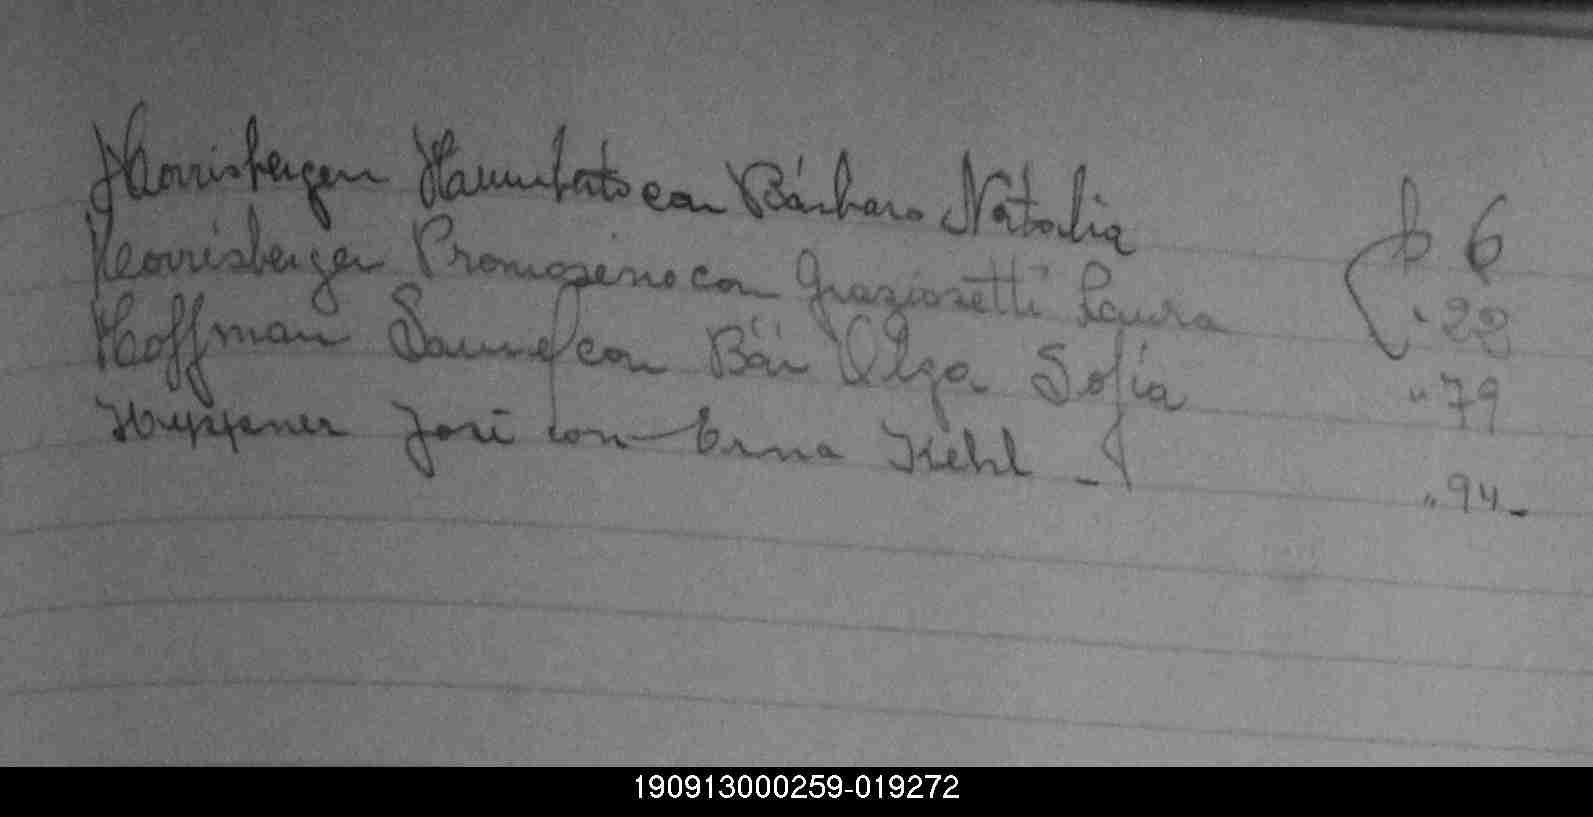 Horrisberger Humberto con Bárbaro Natalia f 6
Horrisberger Promoseno con Graziosetti Laura " 22
Hoffman Samuel con Bär Olga Sofia " 79
Huppner José con Erna Kehl - " 94-
190913000259-019272